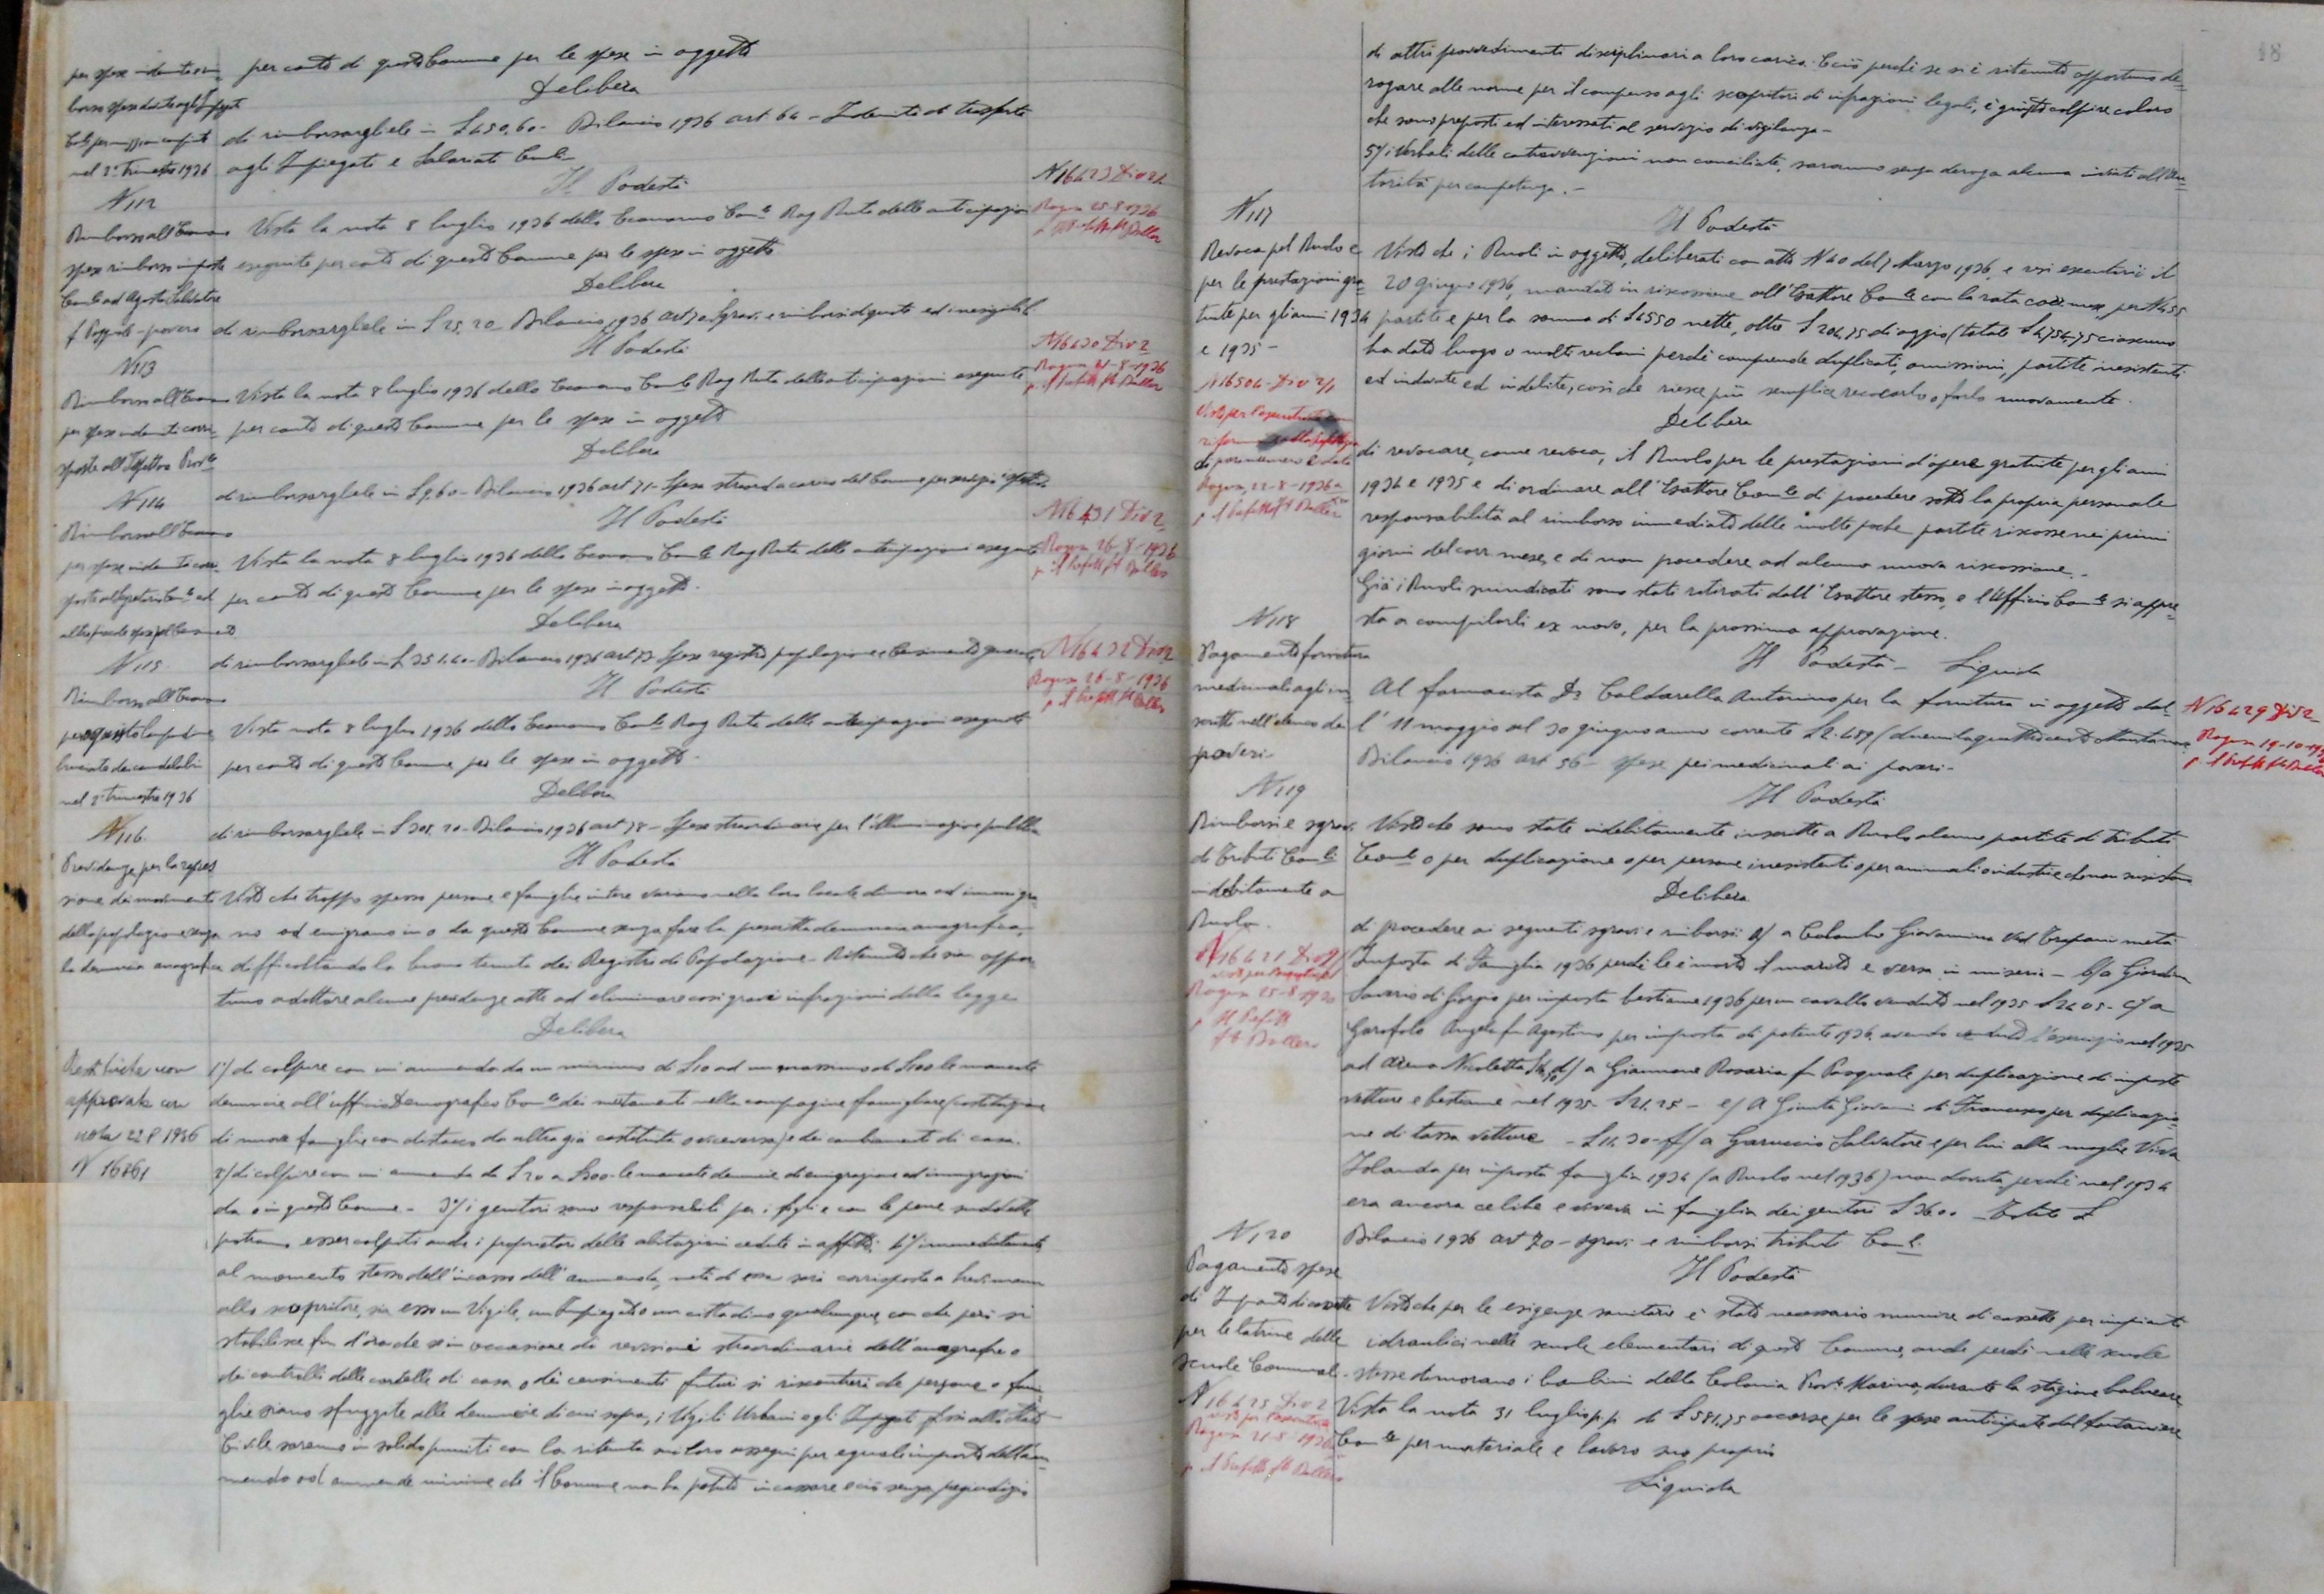 per conto di questo Comune per le spese in oggetto
Delibera
di rimborsargliele in £ 450,60 - Bilancio 1936 art 64 - Indennità di trasferta
agli Impiegati e Salariati Com.li
nel 2° Trimestre 1936
Il Podestà
N 112
Rimborso all'Economo
spese rimborso imposte
Visto la nota 8 luglio 1936 dello Economo Com.le Rag Rute delle anticipazioni
eseguite per conto di questo Comune per le spese in oggetto
Delibera
di rimborsargliele in £ 25.20 - Bilancio 1936 art 70 Sgravi e rimborsi di quote ed inesigibili
N 16423 Div 2/1
Ragusa 25-8-1936
Il Podestà
N 113
Rimborso all'Economo
per spese indennità corri-
sposte all'Ispettore Prov.le
Vista la nota 8 luglio 1936 dello Economo Com.le Rag Rute delle anticipazioni eseguite
per conto di questo Comune per le spese in oggetto
Delibera
di rimborsargliele in £ 9,60 - Bilancio 1936 art 71 - Spese straord a carico del Comune per servizio
N 16430 Div 2
Il Podestà
N 114
Rimborso all'Economo
Vista la nota 8 luglio 1936 dello Economo Com.le Rag Rute delle anticipazioni eseguite
per conto di questo Comune per le spese in oggetto.
Delibera
di rimborsargliele in £ 351.40 - Bilancio 1936 art 73 Spese registro popolazione e Censimento generale
N 16431 Div 2
Ragusa 26-8-1936
Il Podestà
N 115
Rimborso all'Economo
nel 2° trimestre 1936
Vista nota 8 luglio 1936 dello Economo Com.le Rag Rute delle anticipazioni eseguite
per conto di questo Comune per le spese in oggetto -
Delibera
di rimborsargliele in £ 308.20 - Bilancio 1936 art 78 - Spese straordinarie per l'illuminazione pubblica
N 16432 Div 2
Ragusa 26-8-1936
Il Podestà
N 116
Providenze per la repres
sione dei movimenti
della popolazione senza
la denuncia anagrafica
Visto che troppo spesso persone e famiglie intere variano nella loro locale dimora ed immigra-
no od emigrano in o da questo Comune senza fare la prescritta denuncia anagrafica,
difficoltando la buona tenuta dei Registri di Popolazione - Ritenuto che sia oppor
tuno adottare alcune providenze atte ad eliminare così gravi infrazioni della legge
Delibera
Restituita non
approvata con
nota 22 8 1936
N 16761
1°/ di colpire con un ammenda da un minimo di £ 10 ad un massimo di £ 100 le mancate
denuncie all'ufficio Demografico Com.le dei mutamenti nella compagine famigliare (costituzione
di nuove famiglie con distacco da altra già costituita o viceversa) e dei cambiamenti di casa.
2°/ di colpire con un ammenda da £ 20 a £ 200 le mancate denuncie di emigrazione ed immigrazioni
da o in questo Comune - 3°/ i genitori sono responsabili per i figli e con le pene suddette
potranno esser colpiti anche i proprietari delle abitazioni cedute in affitto. 4°/ immediatamente
al momento stesso dell'incasso dell'ammenda, metà di essa sarà corrisposta a brevi mano
allo scopritore, sia esso un Vigile, un Impiegato o un cittadino qualunque, con che però si
stabilisce fin d'ora che se in occasione di revisioni straordinarie dell'anagrafe o
dei controlli delle cartelle di casa o dei censimenti futuri si riscontrerà che persone o fami
glie siano sfuggite alle denuncie di cui sopra, i Vigili Urbani e gli Impiegati fissi allo Stato
Civile saranno in solido puniti con la ritenuta sui loro assegni per eguale importo dell'am-
menda od ammende minime che il Comune non ha potuto incassare e ciò senza pregiudizio
18
di altri provvedimenti disciplinari a loro carico. E ciò perché se si è ritenuto opportuno de-
rogare alle norme per il compenso agli scopritori di infrazioni legali, è giusto colpire coloro
che sono preposti ed interessati al servizio di vigilanza -
5°/ i Verbali delle contravvenzioni non conciliate, saranno senza deroga alcuna inviati all'Au-
torità per competenza. -
N 117
Revoca pel Ruolo e
per le prestazioni gra-
tuite per gli anni 1934
e 1935 -
Il Podestà
Visto che i Ruoli in oggetto, deliberati con atto N 40 del 7 Marzo 1936, e resi esecutorii il
20 giugno 1936, mandato in riscossione all'Esattore Com.le con la rata corr. mese per N 455
partite e per la somma di £ 4550 nette, oltre £ 204,75 di aggio (totale £ 4754,75 ciascuno
ha dato luogo a molti reclami perché comprende duplicati, omissioni, partite inesistenti
ed indovate ed indebite, così che riesce più semplice revocarlo e farlo nuovamente.
Delibera
N 16504 - Div 2/1
di revocare, come revoca, il Ruolo per le prestazioni d'opere gratuite per gli anni
1934 e 1935 e di ordinare all'Esattore Com.le di procedere sotto la propria personale
responsabilità al rimborso immediato delle molte poche partite riscosse nei primi
giorni del corr mese, e di non procedere ad alcuna nuova riscossione. -
Già i Ruoli suindicati sono stati ritirati dall'Esattore stesso, e l'Ufficio Com.le si appre-
sta a compilarli ex novo, per la prossima approvazione.
N 118
Pagamento fornitura
medicinali agli in-
scritti nell'elenco dei
poveri -
Il Podestà - Liquida
Al farmacista Dr Caldarella Antonino per la fornitura in oggetto dal-
l'11 maggio al 30 giugno anno corrente £ 2.489 (duemilaquattrocento ottantanove
Bilancio 1936 art 56 - spese pei medicinali ai poveri -
N 16429 Div 2
N 119
Rimborsi e sgravi
di Tributi Com.li
indebitamente a
Ruolo.
Il Podestà
Visto che sono state indebitamente inscritte a Ruolo alcune partite di tributi
Com.li o per duplicazione o per persone inesistenti o per animali o industrie che non esistono
Delibera
N 16421 Div 2/1
Ragusa 25-8-1936
p Il Prefetto
di procedere ai seguenti sgravi e rimborsi: a/ a Colombo Giovannina Ved Trapani metà
Imposta di Famiglia 1936 perché le è morto il marito e versa in miseria - b/ a Giordan
Saverio di Giorgio per imposta bestiame 1936 per un cavallo venduto nel 1935 £ 24.05 - c/ a
Garofolo Angelo fu Agostino per imposta di patente 1936, avendo ceduto l'esercizio nel 1935
ad Arena Nicoletta d/ a Giannone Rosaria fu Pasquale per duplicazione di imposte
vetture e bestiame nel 1935 - £ 21.25 - e/ A Giunta Giovanni di Francesco per duplicazio-
ne di tassa vetture - £ 11.30 - f/ a Garuccio Salvatore e per lui alla moglie Viva
Jolanda per imposta famiglia 1934 (a Ruolo nel 1936) non dovuta perché nel 1934
era ancora celibe e viveva in famiglia dei genitori £ 36.00 - Totale £
Bilancio 1936 art 70 - sgravi e rimborsi tributi Com.li
N 120
Pagamento spese
per le latrine delle
scuole Comunali -
Il Podestà
Visto che per le esigenze sanitarie è stato necessario munire di cassette per impianti
idraulici nelle scuole elementari di questo Comune, anche perché nelle scuole
stesse dimorano i bambini della Colonia Prov.le Marina, durante la stagione balneare
Vista la nota 31 luglio p.p. di £ 581,75 occorse per le spese anticipate dal fontaniere
Com.le per materiale e lavoro suo proprio
Liquida
N 16425 Div 2